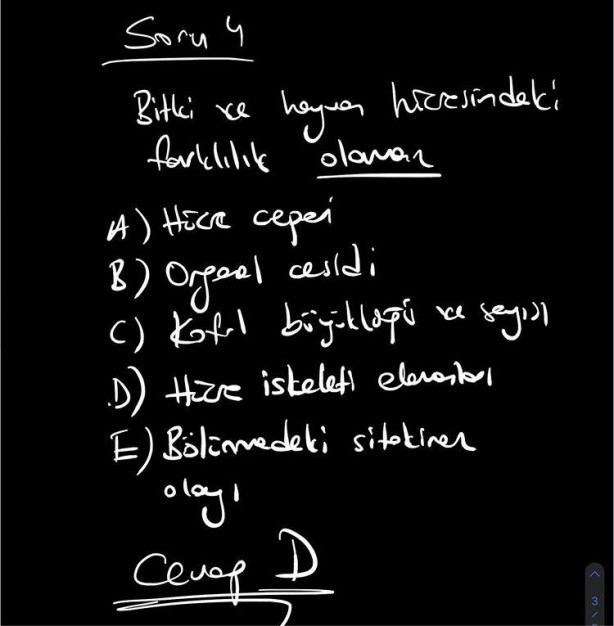 Soru 4
Bitki ve hayvan hücresindeki
farklılık olamaz
A) Hücre ceperi
B) Organel cesidi
C) Koful büyüklügü ve sayısı
D) Hücre iskeleti elemanları
E) Bölünmedeki sitokinez
olayı
Cevap D
3